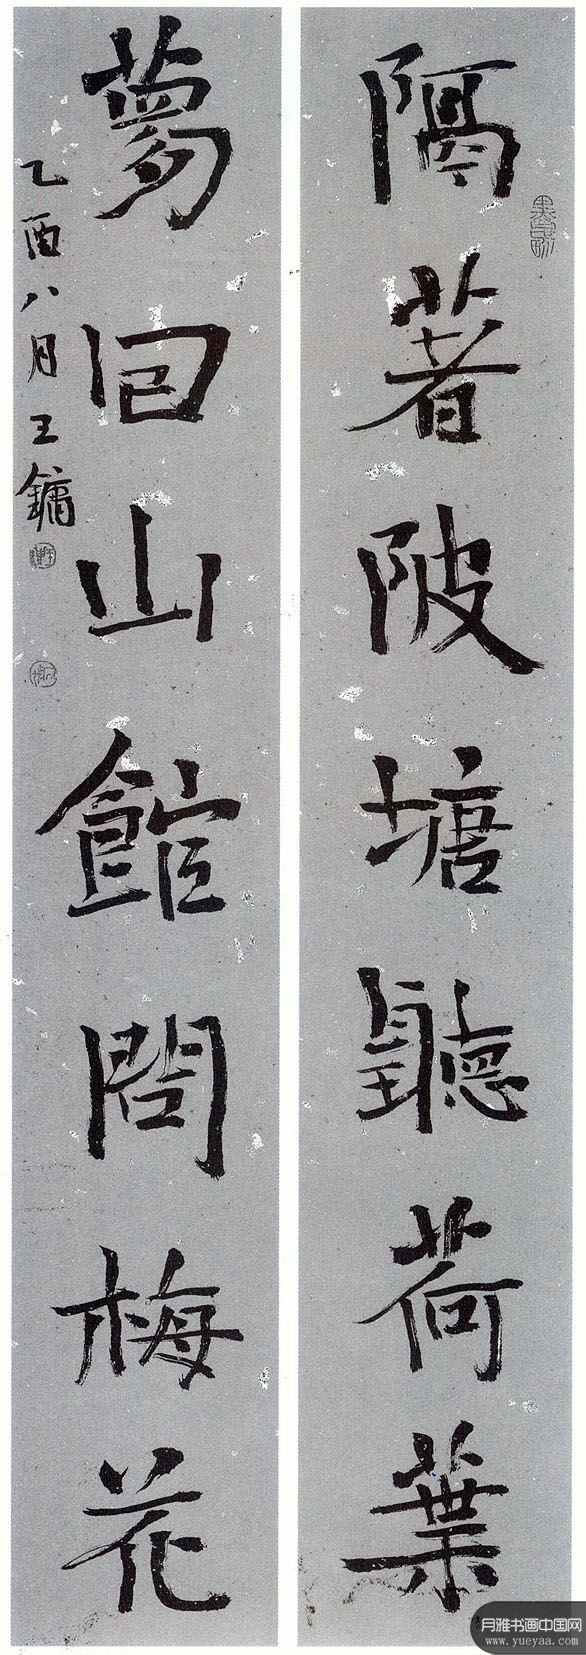 隔著陂塘聽荷葉
夢回山館問梅花
乙酉八月王鏞
月雅书画中国网
www.yueyaa.com